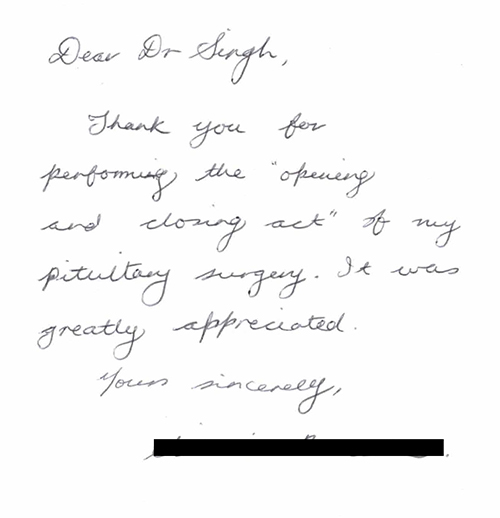 Dear Dr Singh,
Thank you for
performing the "opening
and closing act" of my
pituitary surgery. It was
greatly appreciated.
Yours sincerely,